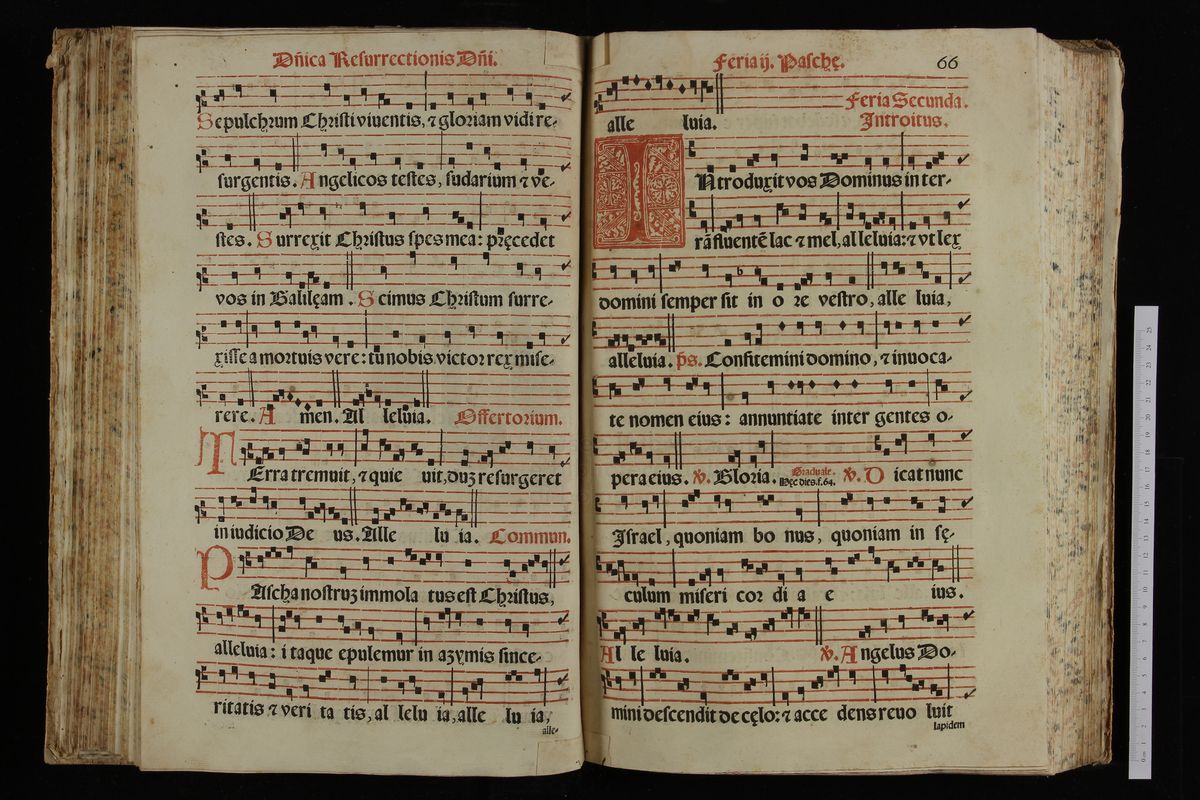 Dñica Resurrectionis Dñi.
Sepulchrum Christi viventis, ⁊ gloriam vidi re-
surgentis. Angelicos testes, sudarium ⁊ ve-
stes. Surrexit Christus spes mea: pręcedet
vos in Galilęam. Scimus Christum surre-
xisse a mortuis vere: tu nobis victor rex mise-
rere. A men. Al leluia. Offertorium.
TErra tremuit, ⁊ quie uit, duʒ resurgeret
in iudicio De us. Alle lu ia. Commun.
PAscha nostruʒ immola tus est Christus,
alleluia: i taque epulemur in azymis since-
ritatis ⁊ veri ta tis, al lelu ia, alle lu ia,
alle-
Feria ij. Paschę. 66
alle luia. Feria Secunda.
Introitus.
INtroduxit vos Dominus in ter-
rã fluentẽ lac ⁊ mel, al leluia: ⁊ vt lex
domini semper sit in o re vestro, alle luia,
alleluia. ps. Confitemini domino, ⁊ inuoca-
te nomen eius: annuntiate inter gentes o-
pera eius. ℣. Gloria. Graduale. Hęc dies. f. 64. ℣. D icat nunc
Israel, quoniam bo nus, quoniam in sę-
culum miseri cor di a e ius.
Al le luia. ℣. Angelus Do-
mini descendit de cęlo: ⁊ acce dens reuo luit
lapidem